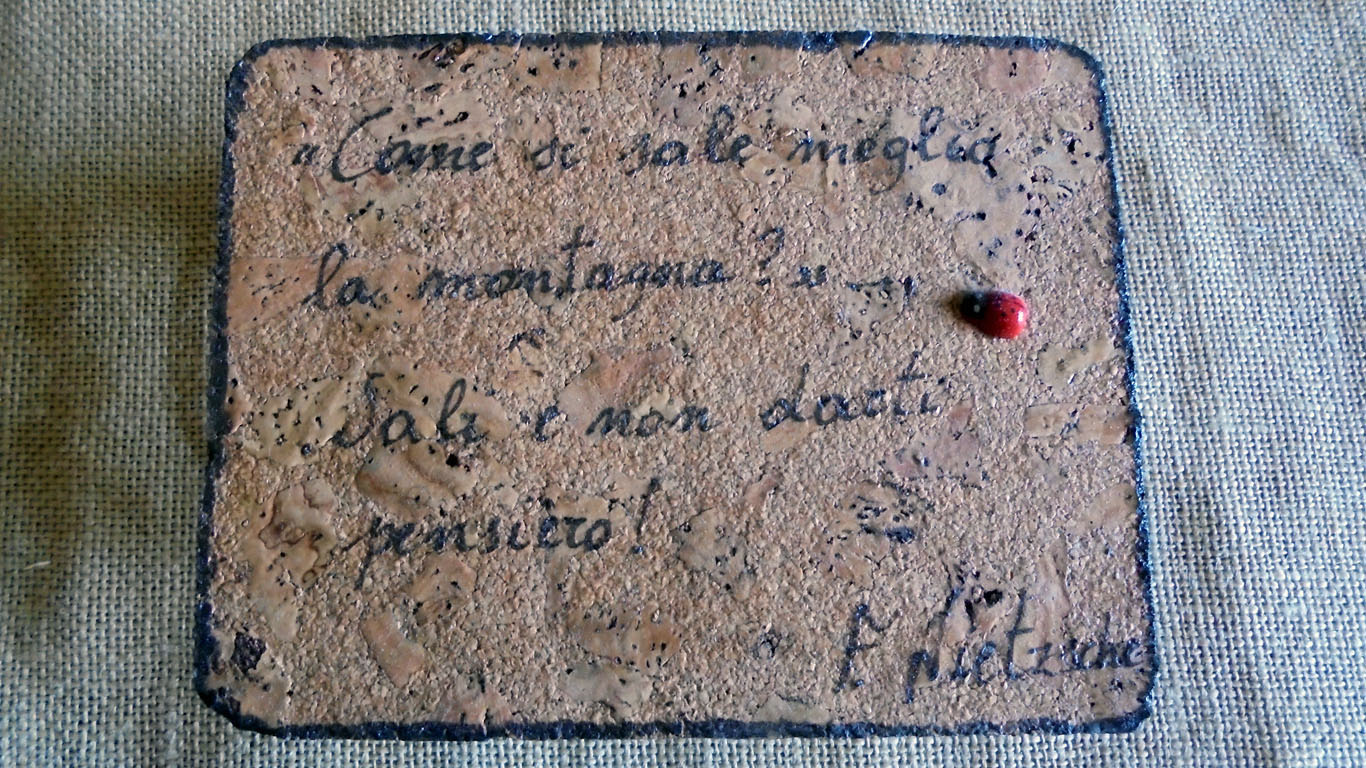 «Come si sale meglio
la montagna?» -
Sali e non darti
pensiero!
F. Nietzsche